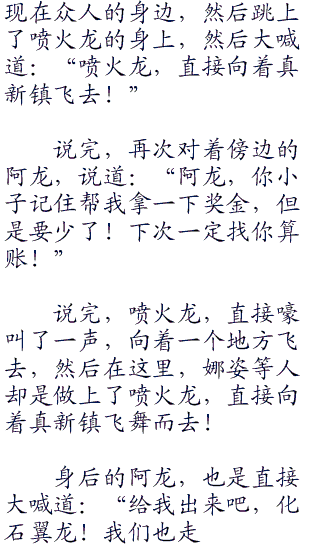 现在众人的身边，然后跳上
了喷火龙的身上，然后大喊
道：“喷火龙，直接向着真
新镇飞去！”
说完，再次对着傍边的
阿龙，说道：“阿龙，你小
子记住帮我拿一下奖金，但
是要少了！下次一定找你算
账！”
说完，喷火龙，直接嚎
叫了一声，向着一个地方飞
去，然后在这里，娜姿等人
却是做上了喷火龙，直接向
着真新镇飞舞而去！
身后的阿龙，也是直接
大喊道：“给我出来吧，化
石翼龙！我们也走